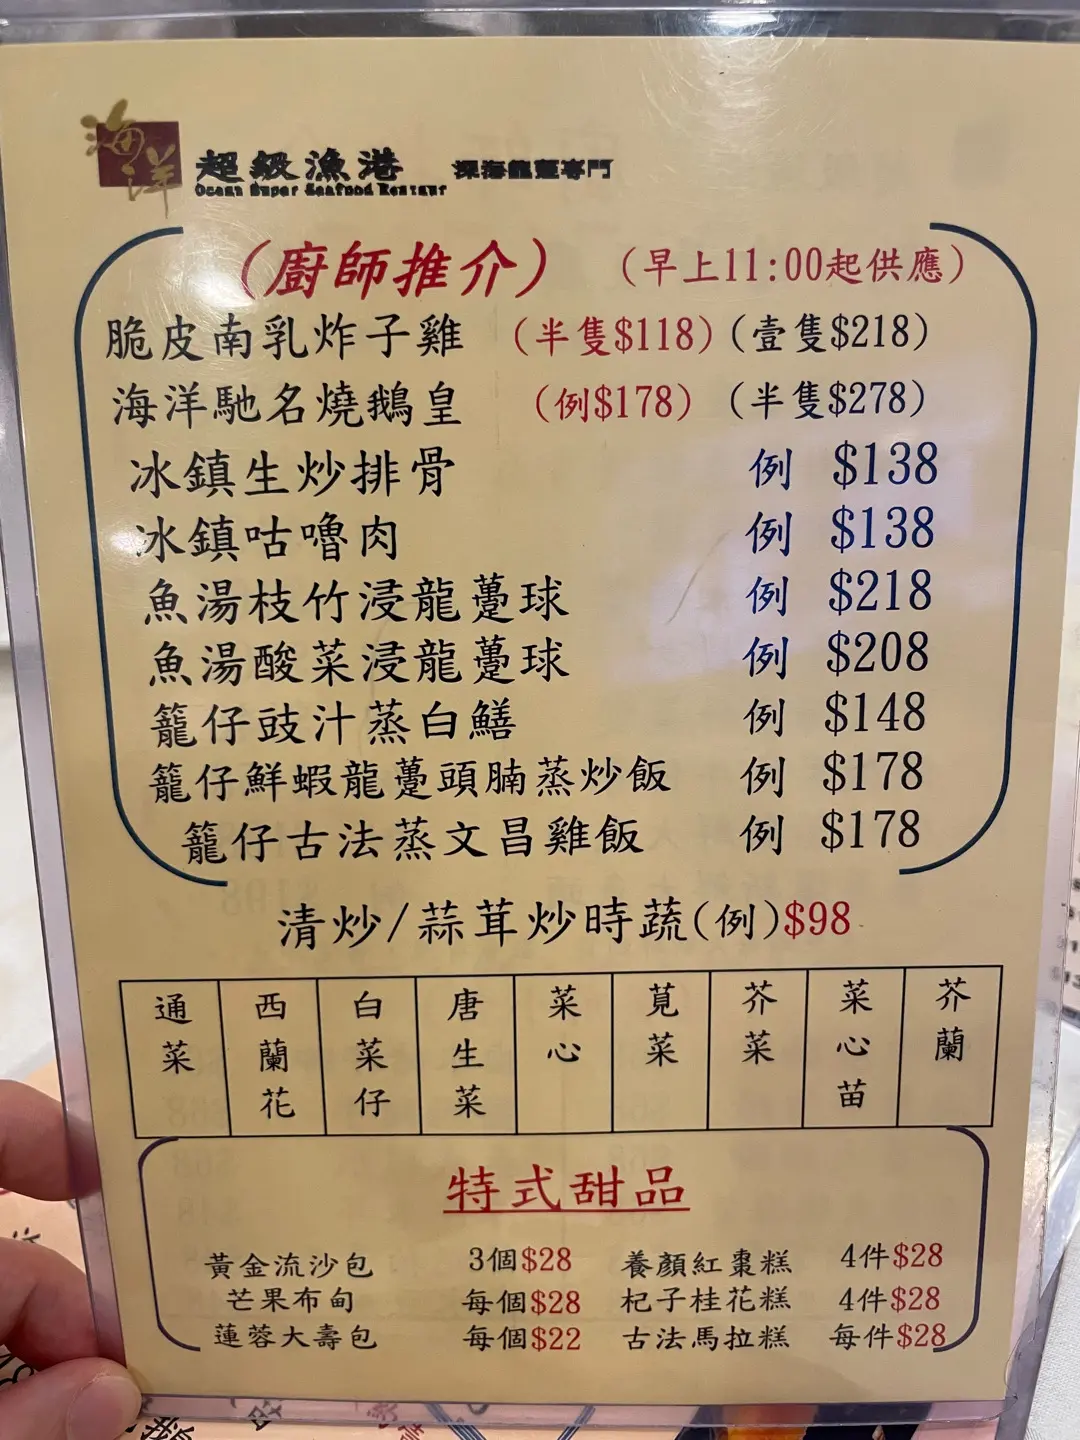 海洋
超級漁港 深海龍躉專門
Ocean Super Seafood Restaur
(廚師推介) (早上11:00起供應)
脆皮南乳炸子雞 (半隻$118) (壹隻$218)
海洋馳名燒鵝皇 (例$178) (半隻$278)
冰鎮生炒排骨 例 $138
冰鎮咕嚕肉 例 $138
魚湯枝竹浸龍躉球 例 $218
魚湯酸菜浸龍躉球 例 $208
籠仔豉汁蒸白鱔 例 $148
籠仔鮮蝦龍躉頭腩蒸炒飯 例 $178
籠仔古法蒸文昌雞飯 例 $178
清炒/蒜茸炒時蔬(例)$98
通菜 西蘭花 白菜仔 唐生菜 菜心 莧菜 芥菜 菜心苗 芥蘭
特式甜品
黃金流沙包 3個$28 養顏紅棗糕 4件$28
芒果布甸 每個$28 杞子桂花糕 4件$28
蓮蓉大壽包 每個$22 古法馬拉糕 每件$28